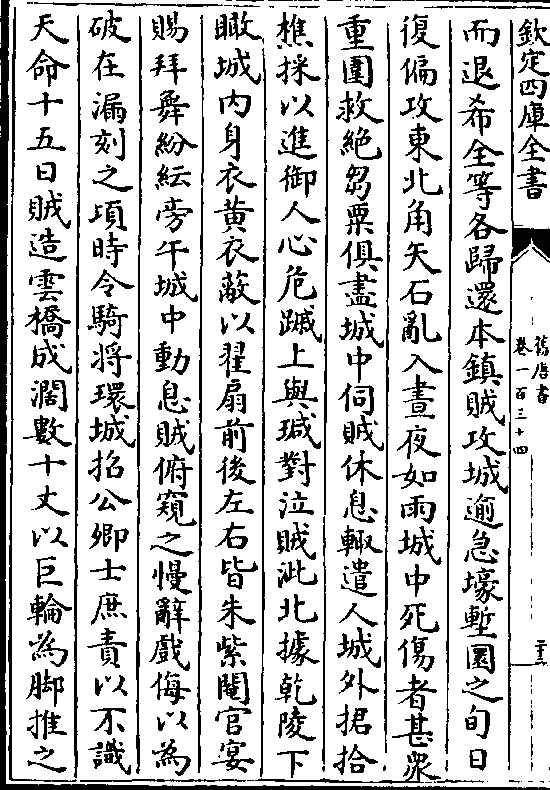 欽定四庫全書
舊唐書
卷一百三十四
二十三
而退希全等各歸還本鎮賊攻城逾急壕塹圜之旬日
復偏攻東北角矢石亂入晝夜如雨城中死傷者甚衆
重圍救絶芻粟俱盡城中伺賊休息輙遣人城外捃拾
樵採以進御人心危蹙上與瑊對泣賊泚北據乾陵下
瞰城内身衣黄衣蔽以翟扇前後左右皆朱紫閹官宴
賜拜舞紛紜旁午城中動息賊俯窺之慢辭戲侮以為
破在漏刻之項時令騎將環城招公卿士庶責以不識
天命十五日賊造雲橋成濶數十丈以巨輪為脚推之